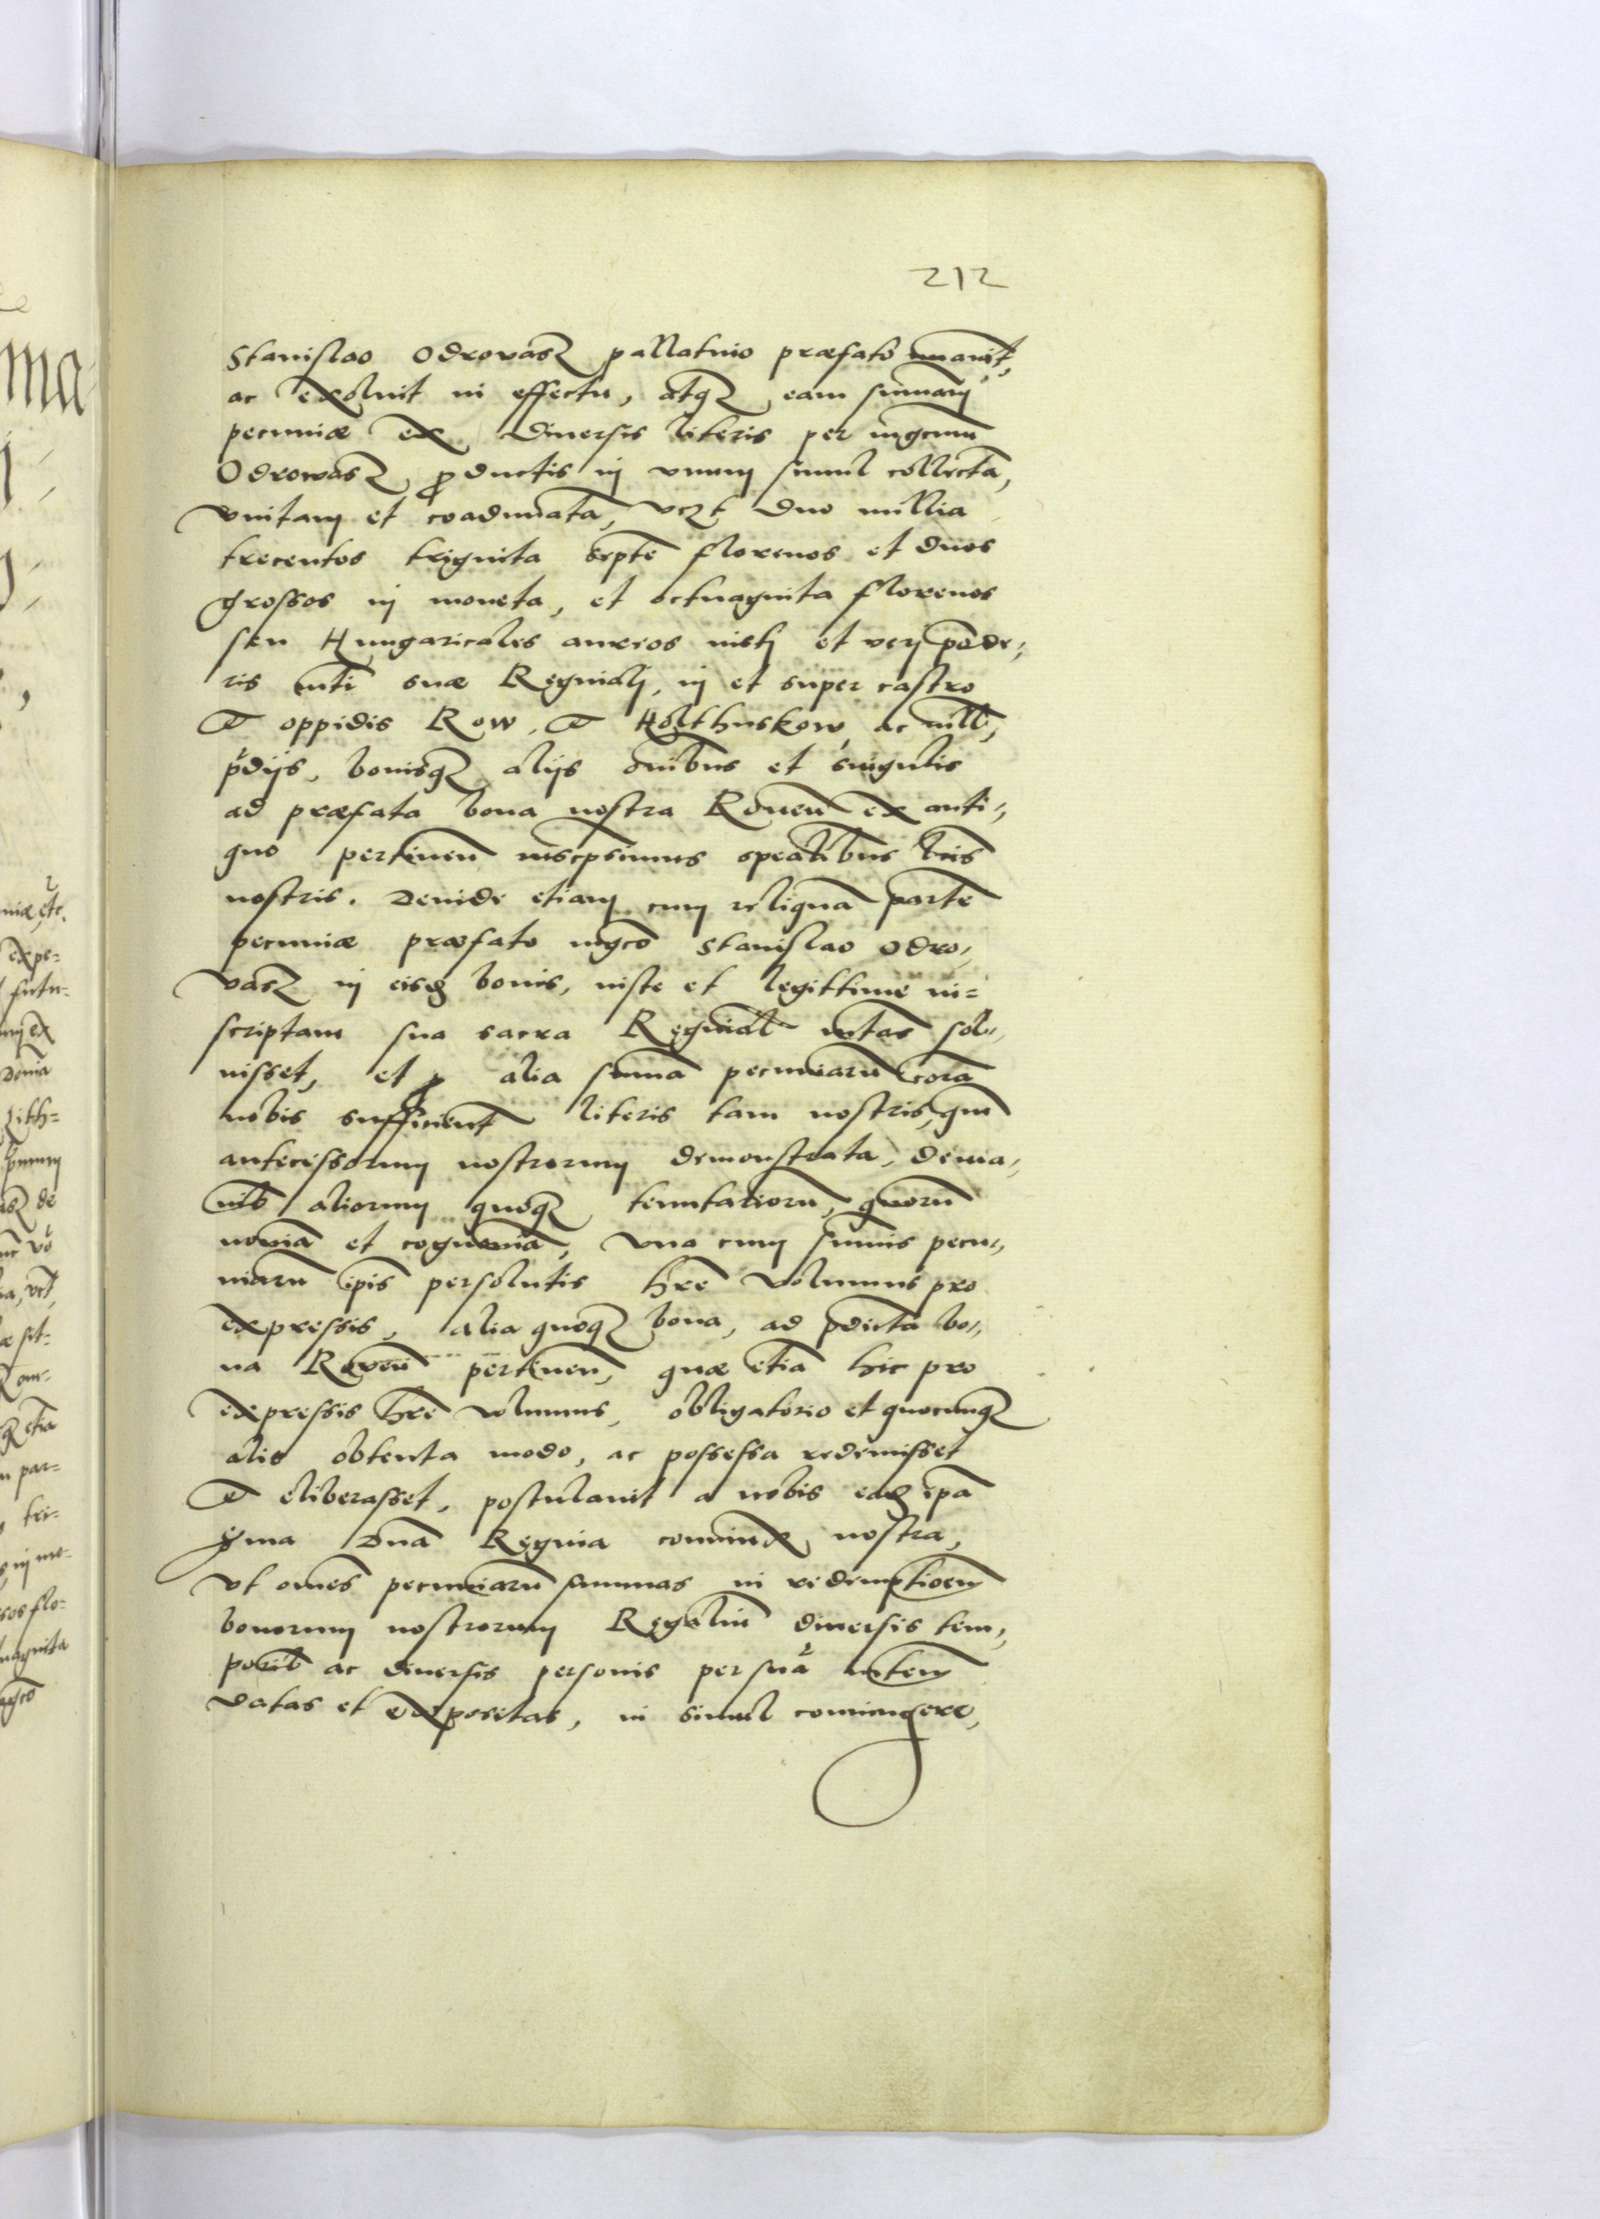 212
Stanislao Odrovasz pallatino præfato nuãvit,
ac exolvit in effectu, atqz eam sum̃am
pecuniæ ex diversis literis per mgcum̃
Odrowasz ꝓductis in unum simul collectã,
unitam et coadunatã, vczt duo millia
trecentos triginta septẽ florenos et duos
grossos in moneta, et octuaginta florenos
seu Hungaricales aureos iusti et veri põde,,
ris Mti suæ Reginali, in et super castro
et oppidis Row, et Holthuskow, ac vill,,
p̃dijs, bonisqz alijs om̃ibus et singulis
ad præfata bona nostra Roven̄ ex anti,,
quo pertinen̄ inscpsimus spealibus lris
nostris. Deinde etiam cum reliquã partẽ
pecuniæ præfato mgco Stanislao Odro,,
vasz in eisd bonis, iuste et legittime in=
scriptam sua sacra Reginal Mtas sol,,
visset, et ꝓ alia sum̃a pecuniarũ corã
nobis sufficient literis tam nostris, qum̃
antecessorum nostrorum demonstrata, dema,,
nib aliorum quoqz tenutariorũ, quorũ
nom̃ia et cognom̃ia, una cum sum̃is pecu,,
niarũ ip̃is persolutis hrẽ volumus pro
expressis, alia quoqz bona, ad p̃dicta bo,,
na Roven̄ pertinen̄, quæ etiã hic pro
expressis hrẽ volumus, obligatorio et quocunqz
alio obtenta modo, ac possessa redemisset
et eliberasset, postulavit a nobis ead ip̃a
Sma Dnã Regina coniunx nostra,
ut om̃es pecuniarũ summas in redemptioem
bonorum nostrorum Regaliũ diversis tem,,
porib ac diversis personis per suã Mtem
datas et expositas, in simul coniungere,